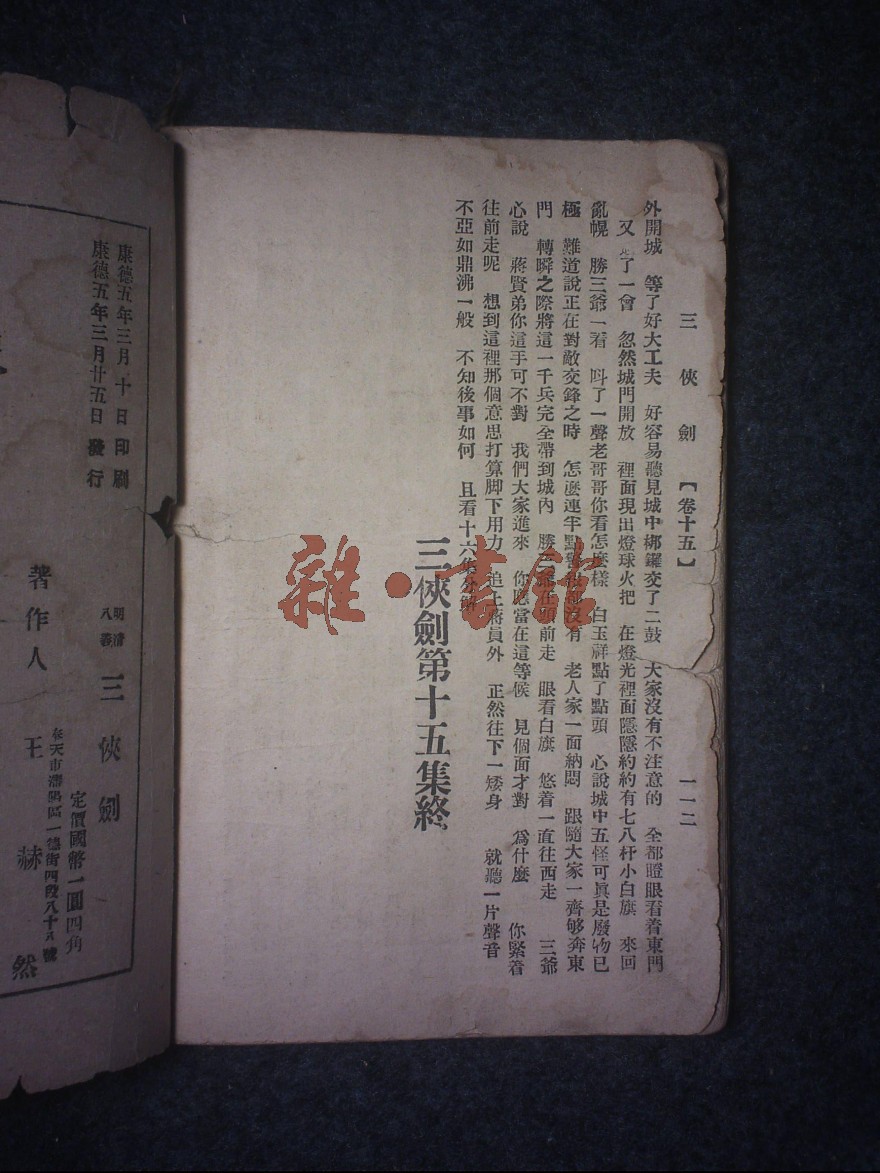 三俠劍【卷十五】 一一二
外開城 等了好大工夫 好容易聽見城中梆鑼交了二鼓 大家沒有不注意的 全都瞪眼看着東門
又 了一會 忽然城門開放 裡面現出燈球火把 在燈光裡面隱隱約約有七八杆小白旗 來回
亂幌 勝三爺一看 呌了一聲老哥哥你看怎麼樣 白玉祥點了點頭 心說城中五怪可眞是廢物已
極 難道說正在對敵交鋒之時 怎麼連 點 都沒有 老人家一面納悶 跟隨大家一齊够奔東
門 轉瞬之際將這一千兵完全帶到城內 勝三爺在頭前走 眼看白旗 悠着一直往西走 三爺
心說 蔣賢弟你這手可不對 我們大家進來 你應當在這等候 見個面才對 爲什麼 你緊着
往前走呢 想到這裡那個意思打算脚下用力 追上蔣員外 正然往下一矮身 就聽一片聲音
不亞如鼎沸一般 不知後事如何 且看十六集分解
三俠劍第十五集終
康德五年三月十日印刷
康德五年三月廿五日發行
明清八義 三俠劍
定價國幣一圓四角
著作人 王赫然
奉天市瀋陽區一德街四段八十八號
雜·書館